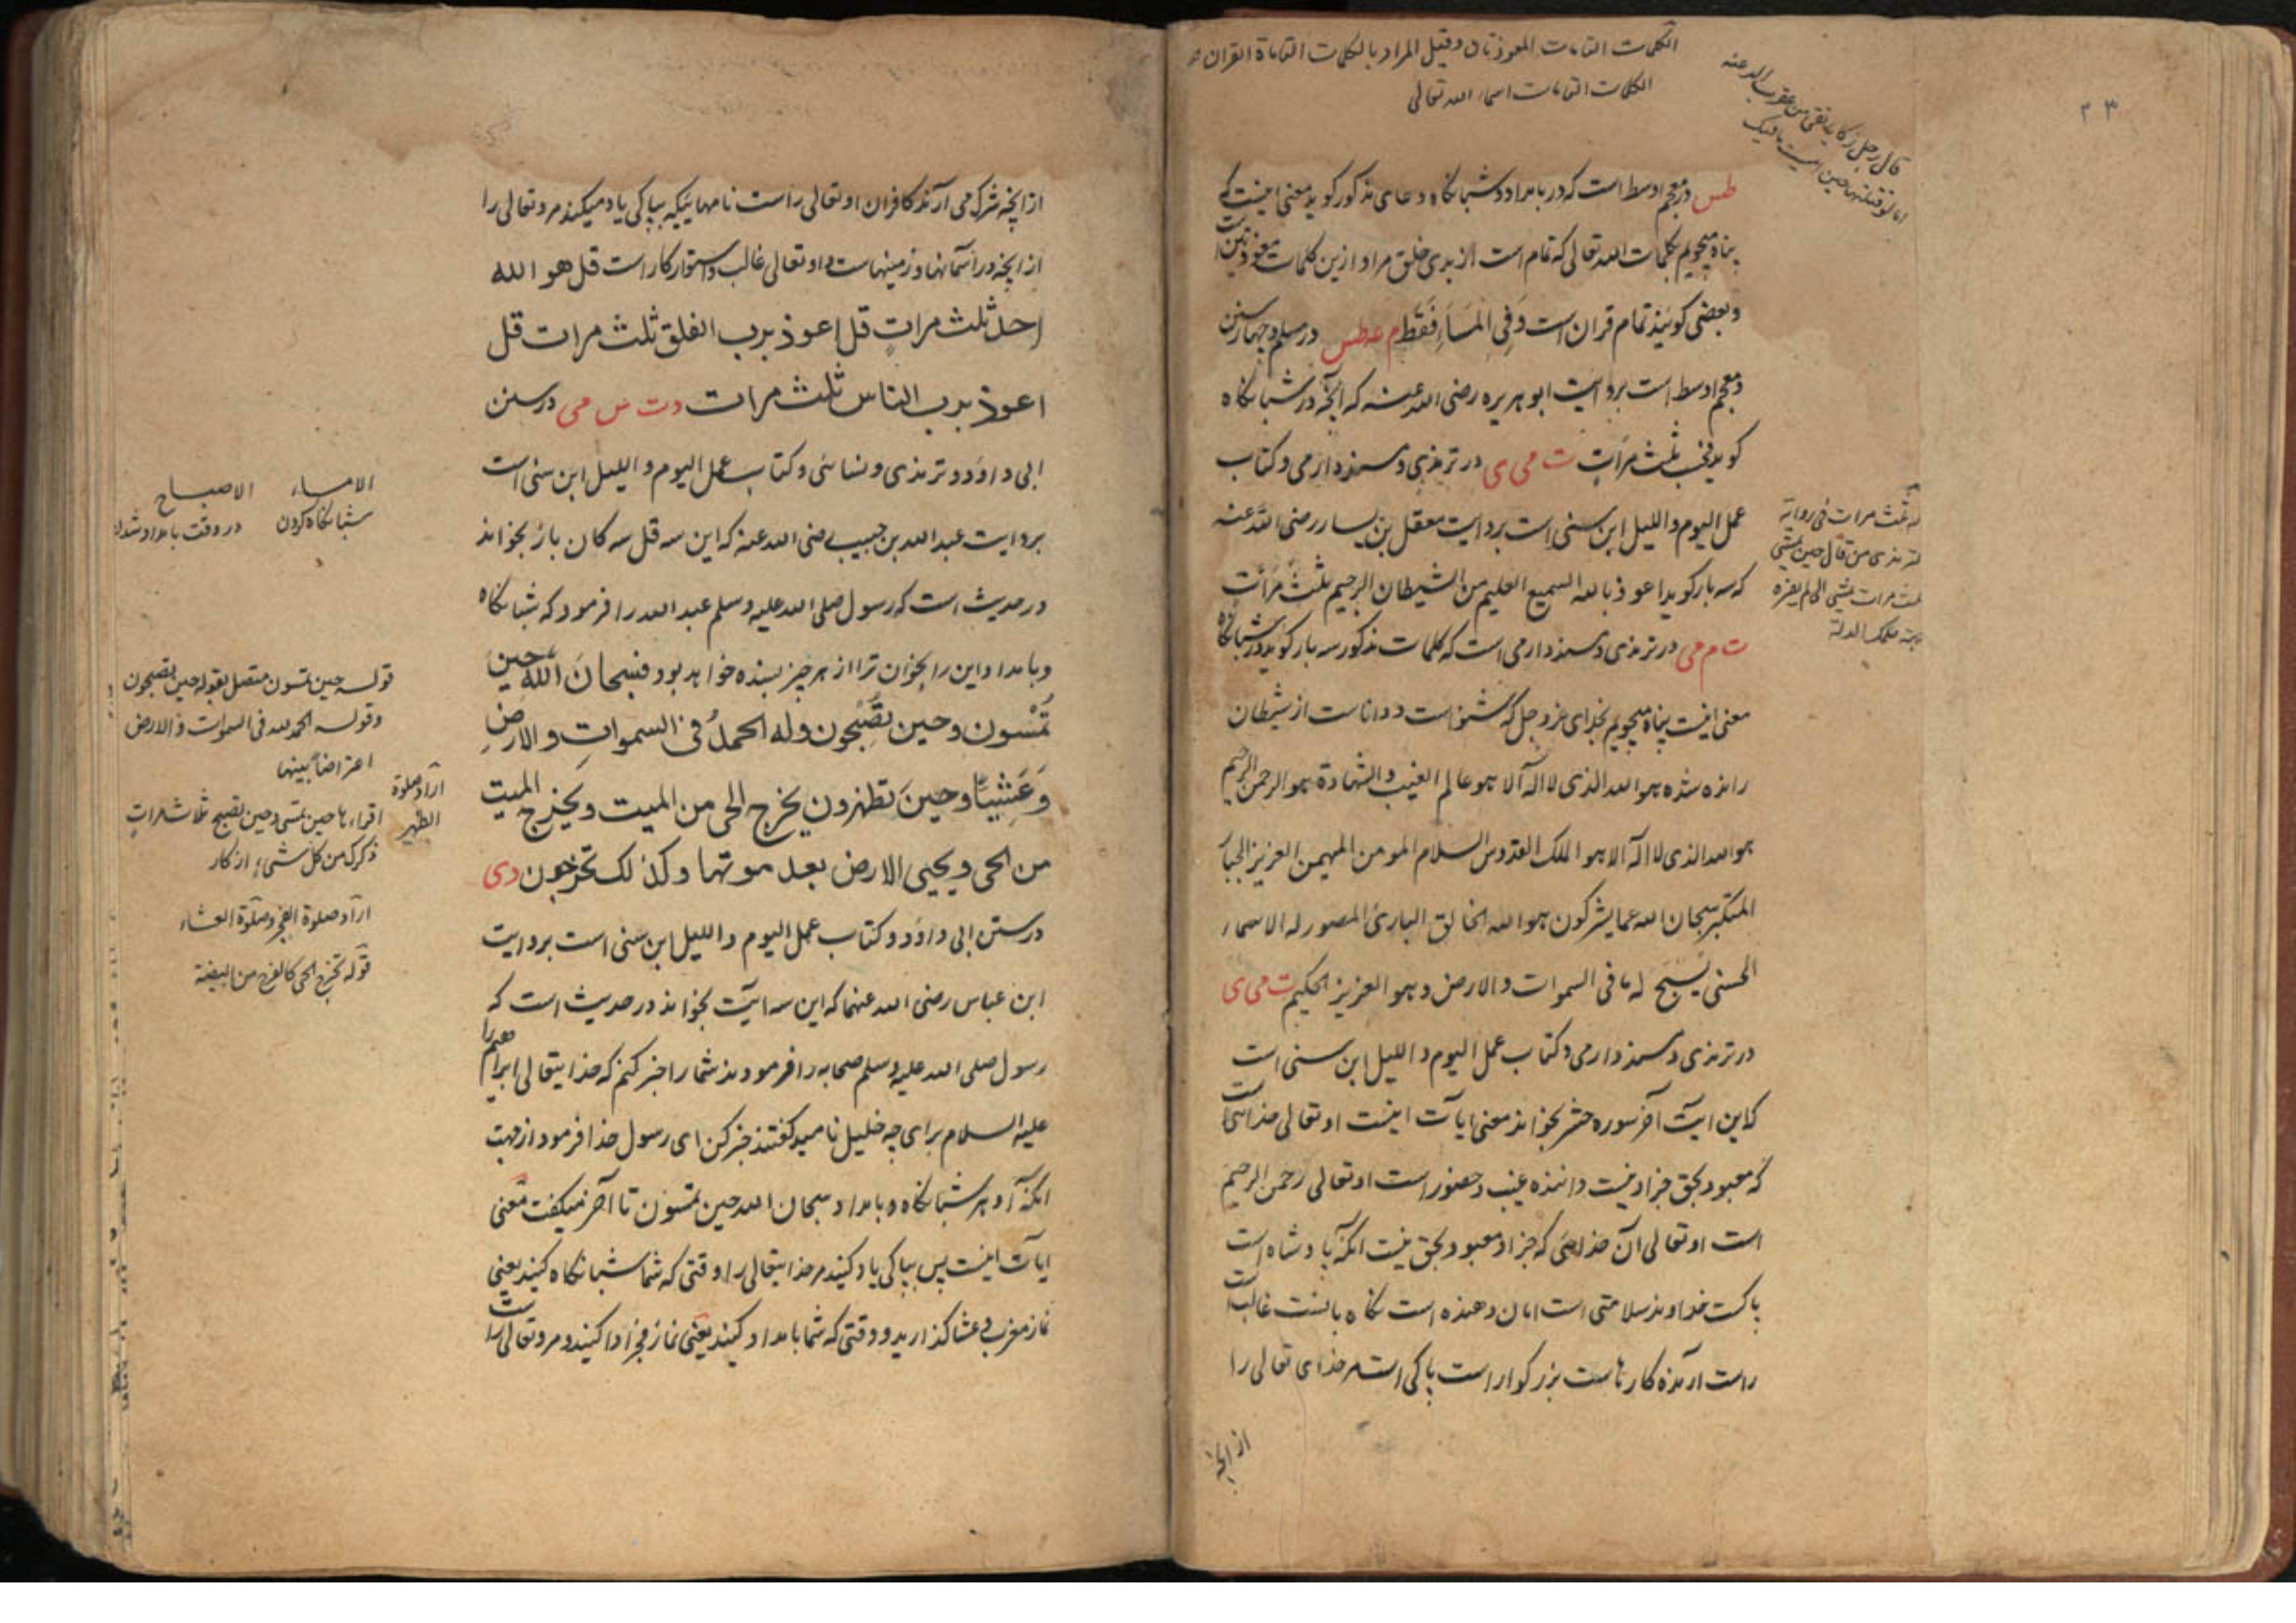 الكلمات التامات المعوذتان وقيل المراد بالكلمات التامة القران
الكلمات التامات اسماء الله تعالى
۲۳
طس در معجم اوسط است که در بامداد و شبانکاه دعای مذکور کوید معنی اینست که
پناه میجویم بکلمات الله تعالی که تمام است از بدی خلق مراد ازین کلمات معوذتین است
و بعضی کویند تمام قران است وفی المساء فقط م عه طس در مسلم و چهار سنن
و معجم اوسط است بروایت ابو هریره رضی الله عنه که انچه در شبانکاه
کوید ثلث مرات ت می ی در ترمذی و مسند دارمی و کتاب
عمل الیوم و اللیل ابن سنی است بروایت معقل بن یسار رضی الله عنه
که سه بار کوید اعوذ بالله السمیع العلیم من الشیطان الرجیم ثلث مرات
ت می در ترمذی و مسند دارمی است که کلمات مذکور سه بار کوید در شبانکاه
معنی اینست پناه میجویم بخدای عز و جل که شنواست و داناست از شیطان
رانده شده هو الله الذی لا اله الا هو عالم الغیب والشهادة هو الرحمن الرحیم
هو الله الذی لا اله الا هو الملک القدوس السلام المومن المهیمن العزیز الجبار
المتکبر سبحان الله عما یشرکون هو الله الخالق البارئ المصور له الاسماء
الحسنی یسبح له ما فی السموات والارض وهو العزیز الحکیم ت می ی
در ترمذی و مسند دارمی و کتاب عمل الیوم و اللیل ابن سنی است
که این ایت اخر سوره حشر بخواند معنی ایات اینست او تعالی خدائی است
که معبود بحق جز او نیست داننده غیب و حضور است او تعالی رحمن الرحیم
است او تعالی ان خدائی که جز او معبود بحق نیست انکه پادشاه است
پاکست خداوند سلامتی است امان دهنده است نکاه بانست غالب است
راست ارنده کارهاست بزرکوار است پاکی است مر خدای تعالی را
از انچه
ثلث مرات فی روایة
ترمذی من قال حین یمسی
ثلث مرات
از انچه شرک می آرند کافران او تعالی راست نامها نیکه بپاکی یاد میکند مر و تعالی را
از انچه در آسمانها و زمینهاست و او تعالی غالب و استوار کار است قل هو الله
احد ثلث مرات قل اعوذ برب الفلق ثلث مرات قل
اعوذ برب الناس ثلث مرات د ت س می در سنن
ابی داؤد و ترمذی و نسائی و کتاب عمل الیوم و اللیل ابن سنی است
بروایت عبد الله بن حبیب رضی الله عنه که این سه قل سه کان بار بخواند
در حدیث است که رسول صلی الله علیه وسلم عبد الله را فرمود که شبانکاه
و بامداد این را بخوان ترا از هر چیز بسنده خواهد بود فسبحان الله حین
تمسون وحین تصبحون وله الحمد فی السموات والارض
وعشیا وحین تظهرون یخرج الحی من المیت ویخرج المیت
من الحی ویحیی الارض بعد موتها وکذلک تخرجون د ی
در سنن ابی داؤد و کتاب عمل الیوم و اللیل ابن سنی است بروایت
ابن عباس رضی الله عنهما که این سه ایت بخواند در حدیث است که
رسول صلی الله علیه وسلم صحابه را فرمودند شما را خبر کنم که خدایتعالی ابراهیم را
علیه السلام برای چه خلیل نامید کفتند خبر کن ای رسول خدا فرمود از جهت
انکه او هر شبانکاه و بامداد سبحان الله حین تمسون تا آخر میکفت معنی
ایات اینست پس بپاکی یاد کنید مر خدایتعالی را وقتی که شما شبانکاه کنید یعنی
نماز مغرب و عشا کذارید و وقتی که شما بامداد کنید یعنی نماز فجر ادا کنید و مر و تعالی راست
الامساء
شبانکاه کردن
الاصباح
در وقت بامداد شدن
قوله حین تمسون متصل بقوله حین تصبحون
وقوله الحمد لله فی السموات والارض
اعتراض بینهما
اراد صلوة
الظهر
ارادـ صلوة الفجر وصلوة العشاء
قوله یخرج الحی کالفرخ من البیضة